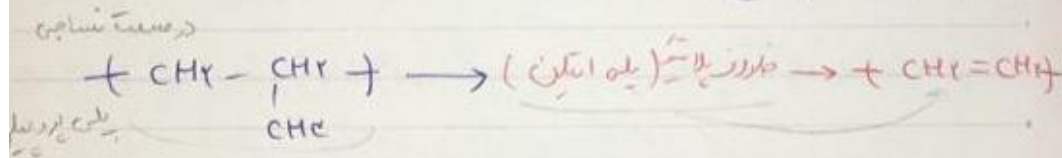 در صنعت نساجی
+ CH۲ - CH۲ + ⟶ (پلی اتیلن) ظروف پلاستیکی → + CH۲ = CH۲ +
پلی پروپیلن CH۳